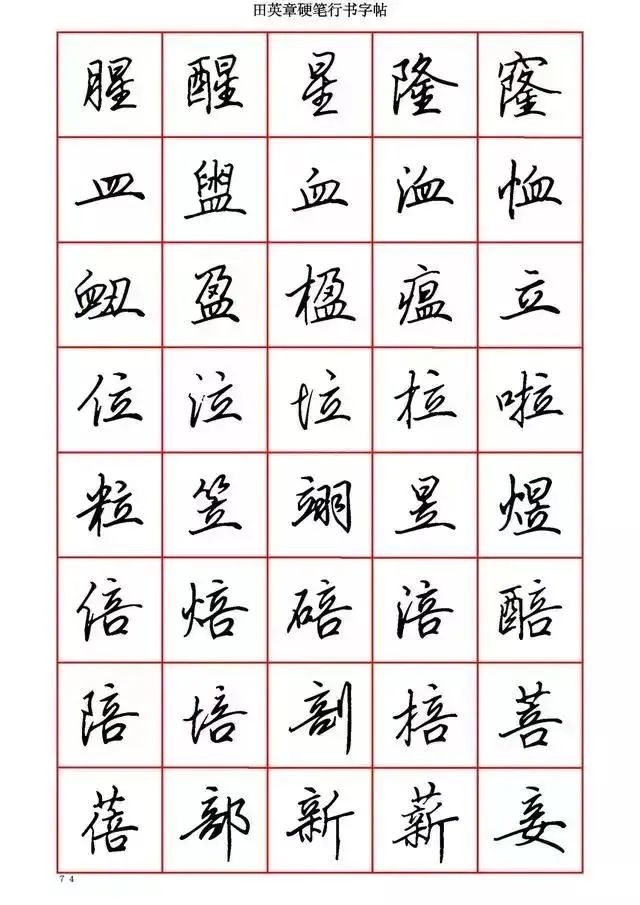 田英章硬笔行书字帖
腥醒星隆窿
皿盥血洫恤
衄盈楹瘟立
位泣垃拉啦
粒笠翊昱煜
倍焙碚涪醅
陪培剖棓菩
蓓部新薪妾
74